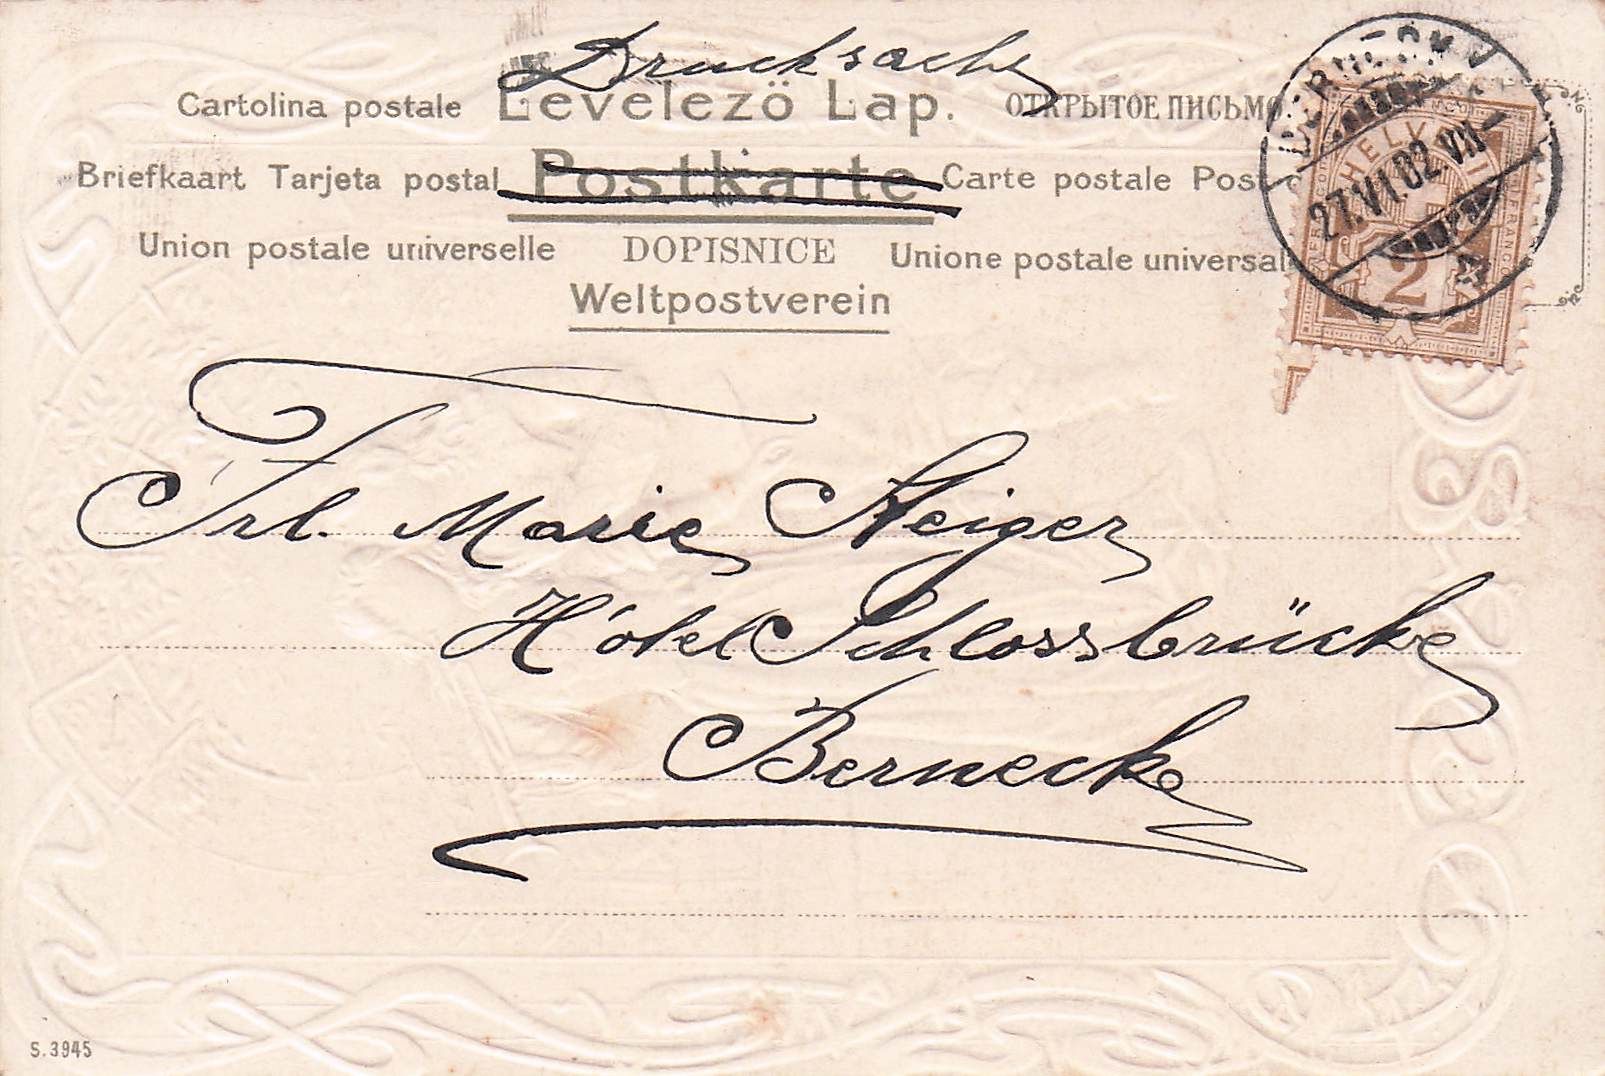 Drucksache
Cartolina postale Levelező Lap. ОТКРЫТОЕ ПИСЬМО.
Briefkaart Tarjeta postal Postkarte Carte postale Post
Union postale universelle DOPISNICE Unione postale universal
Weltpostverein
HELV
27.VI.02.VII
FRANCO
2
Frl. Marie Steiger
Hôtel Schlossbrücke
Berneck
S.3945